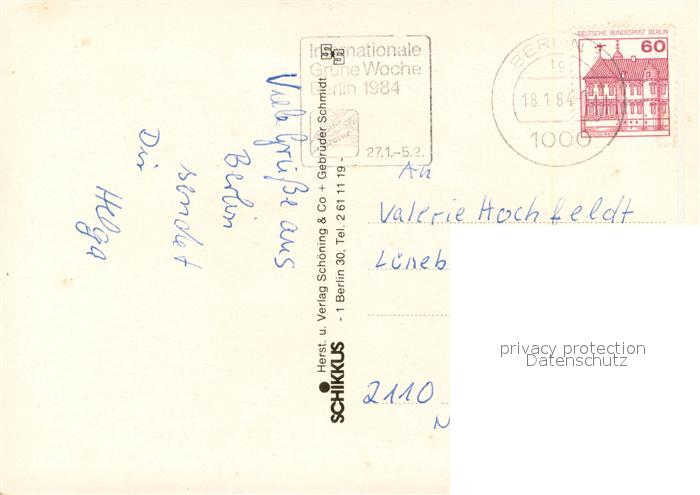 Viele Grüße aus
Berlin
sendet
Dir
Helga
SCHIKKUS
Herst. u. Verlag Schöning & Co + Gebrüder Schmidt
- 1 Berlin 30, Tel. 2 61 11 19 -
Internationale
Grüne Woche
Berlin 1984
27.1.–5.2.
BERLIN
18.1.84
1000
DEUTSCHE BUNDESPOST BERLIN
60
An
Valerie Hochfeldt
Lüneb
2110
privacy protection
Datenschutz